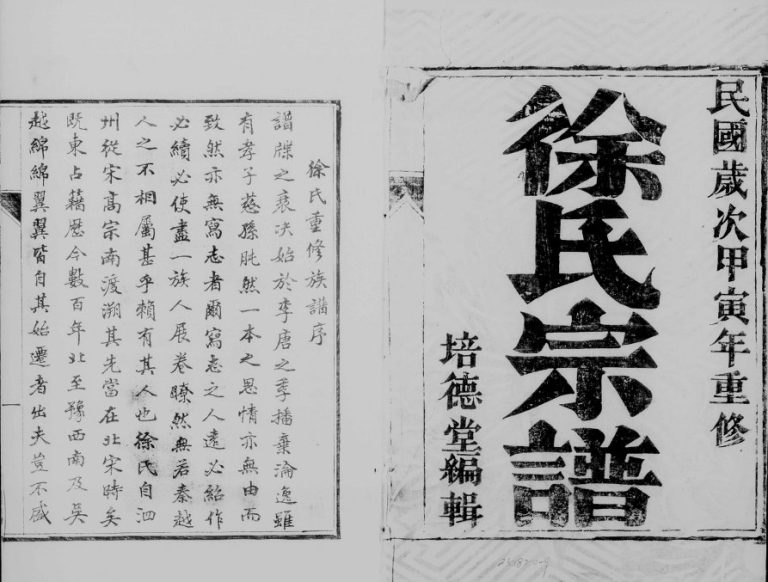 民國歲次甲寅年重修
徐氏宗譜
培德堂編輯
徐氏重修族譜序
譜牒之衰決始於李唐之季播棄淪逸雖
有孝子慈孫眈然一本之恩情亦無由而
致然亦無寫志者爾寫志之人遠必紹作
必續必使盡一族人展卷瞭然無若秦越
人之不相屬甚乎賴有其人也徐氏自泗
州從宋高宗南渡溯其先當在北宋時矣
既東占籍歷今數百年北至豫西南及吳
越綿綿翼翼皆自其始遷者出夫豈不盛